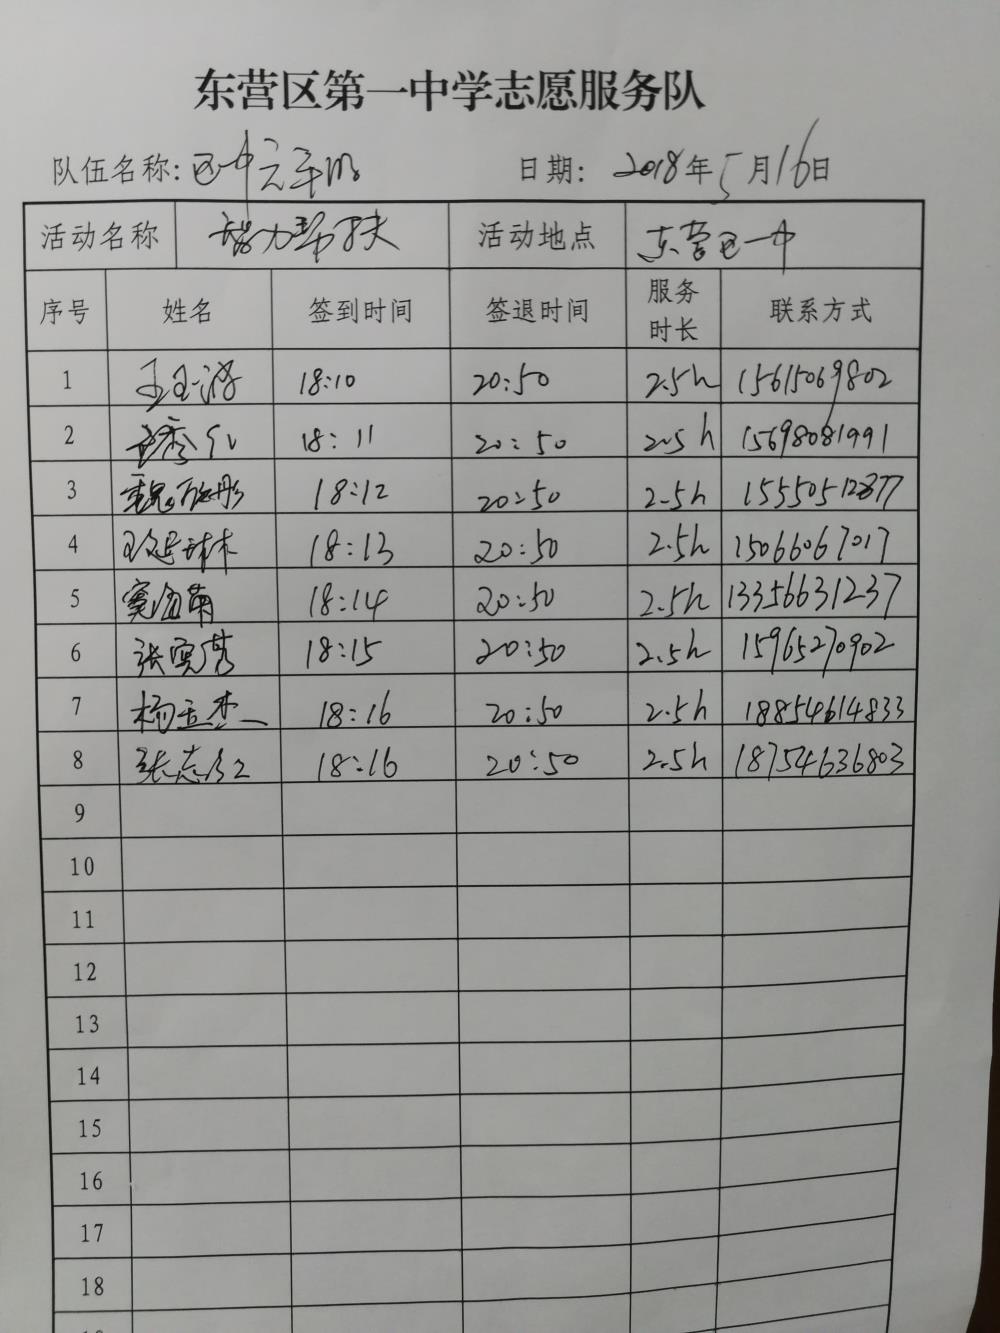 东营区第一中学志愿服务队
队伍名称: 区中 日期: 2018年5月16日
活动名称 智力帮扶 活动地点 东营区一中
序号 姓名 签到时间 签退时间 服务时长 联系方式
1 18:10 20:50 2.5h 15615069802
2 18:11 20:50 2.5h 15698081991
3 18:12 20:50 2.5h
4 18:13 20:50 2.5h 15066067017
5 18:14 20:50 2.5h 13356631237
6 18:15 20:50 2.5h 15965270902
7 杨玉杰 18:16 20:50 2.5h 18854614833
8 18:16 20:50 2.5h 18754636803
9
10
11
12
13
14
15
16
17
18